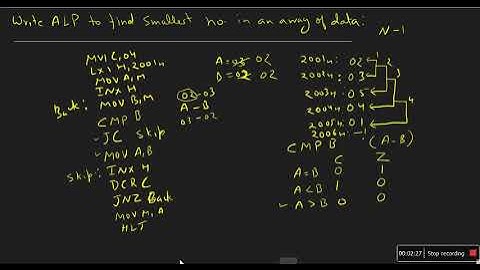 Write ALP to find smallest no. in an array of data:
N-1
MVI C, 04
LXI H, 2001H
MOV A, M
INX H
Back: MOV B, M
CMP B
JC Skip
MOV A, B
Skip: INX H
DCR C
JNZ Back
MOV M, A
HLT
A = 03 02
B = 02
02-03
A - B
03-02
2001H: 02
2002H: 03
2003H: 05
2004H: 04
2005H: 01
2006H:
1
2
3
4
CMP B (A-B)
C Z
A=B 0 1
A<B 1 0
A>B 0 0
00:02:27 Stop recording